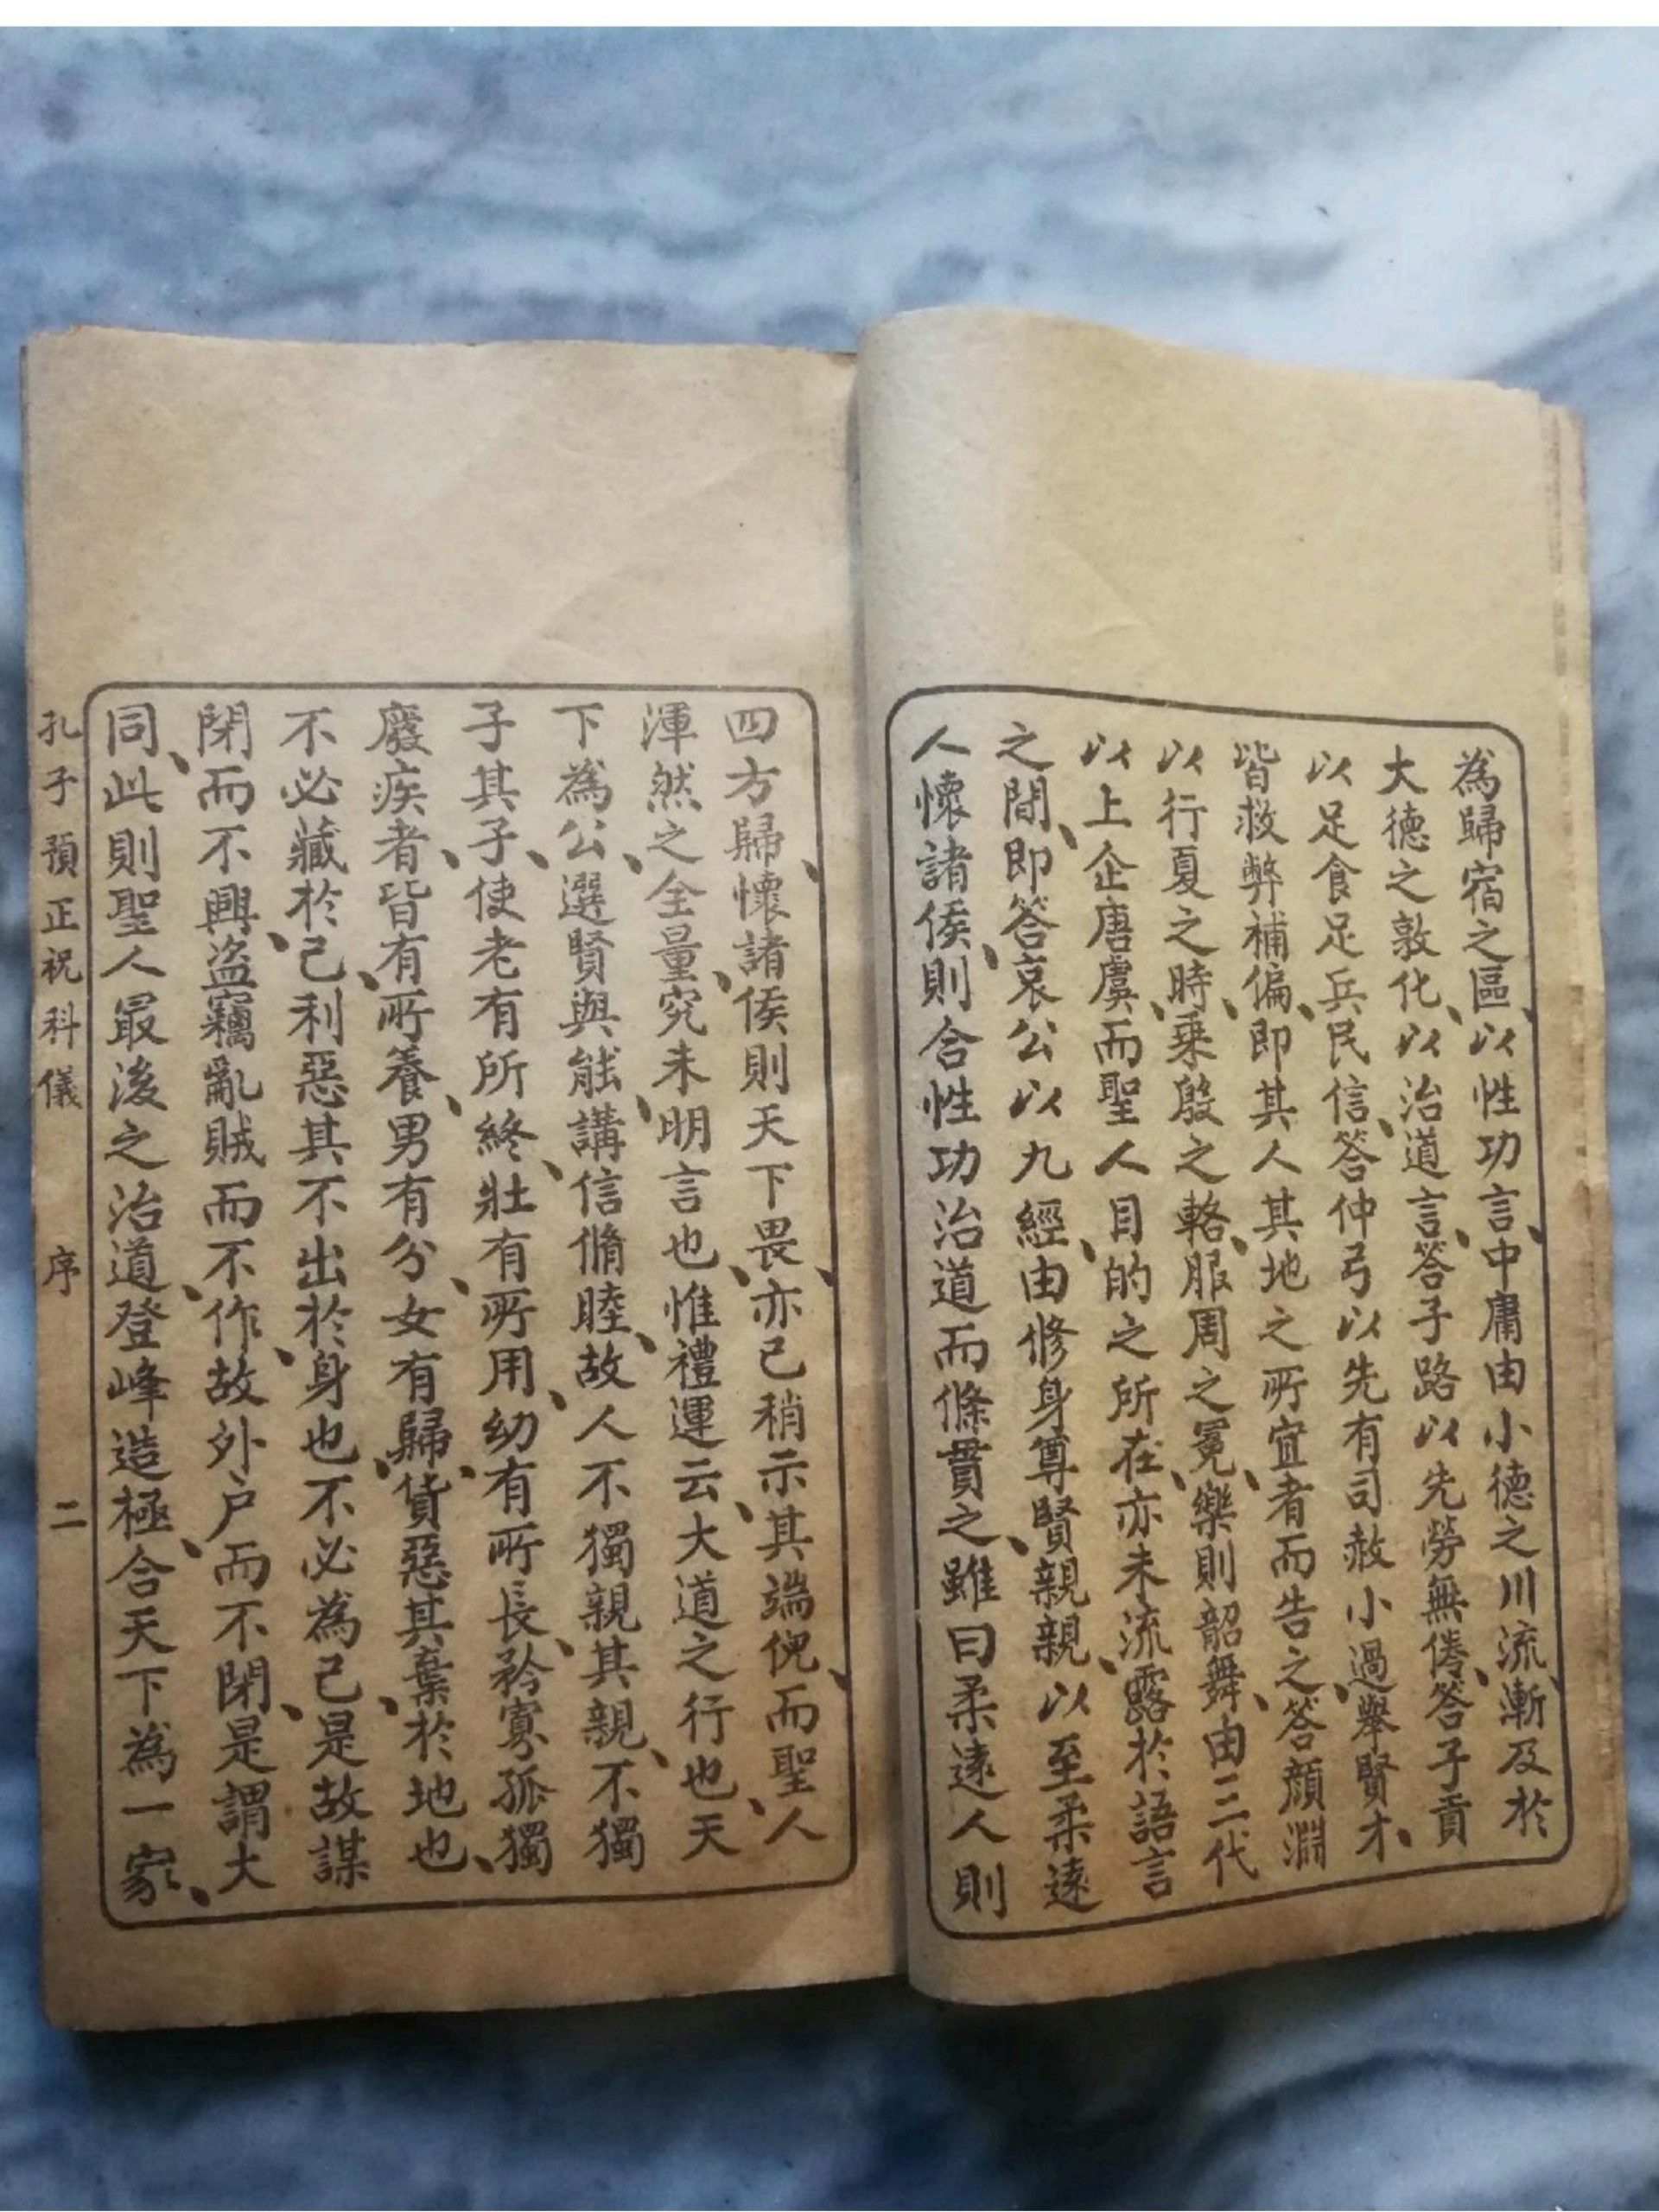 為歸宿之區、以性功言、中庸由小德之川流、漸及於
大德之敦化、以治道言、答子路以先勞無倦、答子貢
以足食足兵民信、答仲弓以先有司赦小過舉賢才、
皆救弊補偏、即其人其地之所宜者而告之、答顏淵
以行夏之時、乘殷之輅、服周之冕、樂則韶舞、由三代
以上企唐虞、而聖人目的之所在、亦未流露於語言
之間、即答哀公以九經、由修身尊賢親親、以至柔遠
人懷諸侯、則合性功治道而條貫之、雖曰柔遠人則
四方歸、懷諸侯則天下畏、亦已稍示其端倪、而聖人
渾然之全量、究未明言也、惟禮運云、大道之行也、天
下為公、選賢與能、講信脩睦、故人不獨親其親、不獨
子其子、使老有所終、壯有所用、幼有所長、矜寡孤獨
廢疾者、皆有所養、男有分、女有歸、貨惡其棄於地也、
不必藏於己、利惡其不出於身也、不必為己、是故謀
閉而不興、盜竊亂賊而不作、故外户而不閉、是謂大
同、此則聖人最後之治道、登峰造極、合天下為一家、
孔子預正祝科儀 序 二